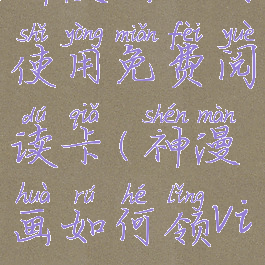 shǐ yòng miǎn fèi yuè
使用免费阅
dú qiǎ shén màn
读卡(神漫
huà rú hé lǐng
画如何领Vi